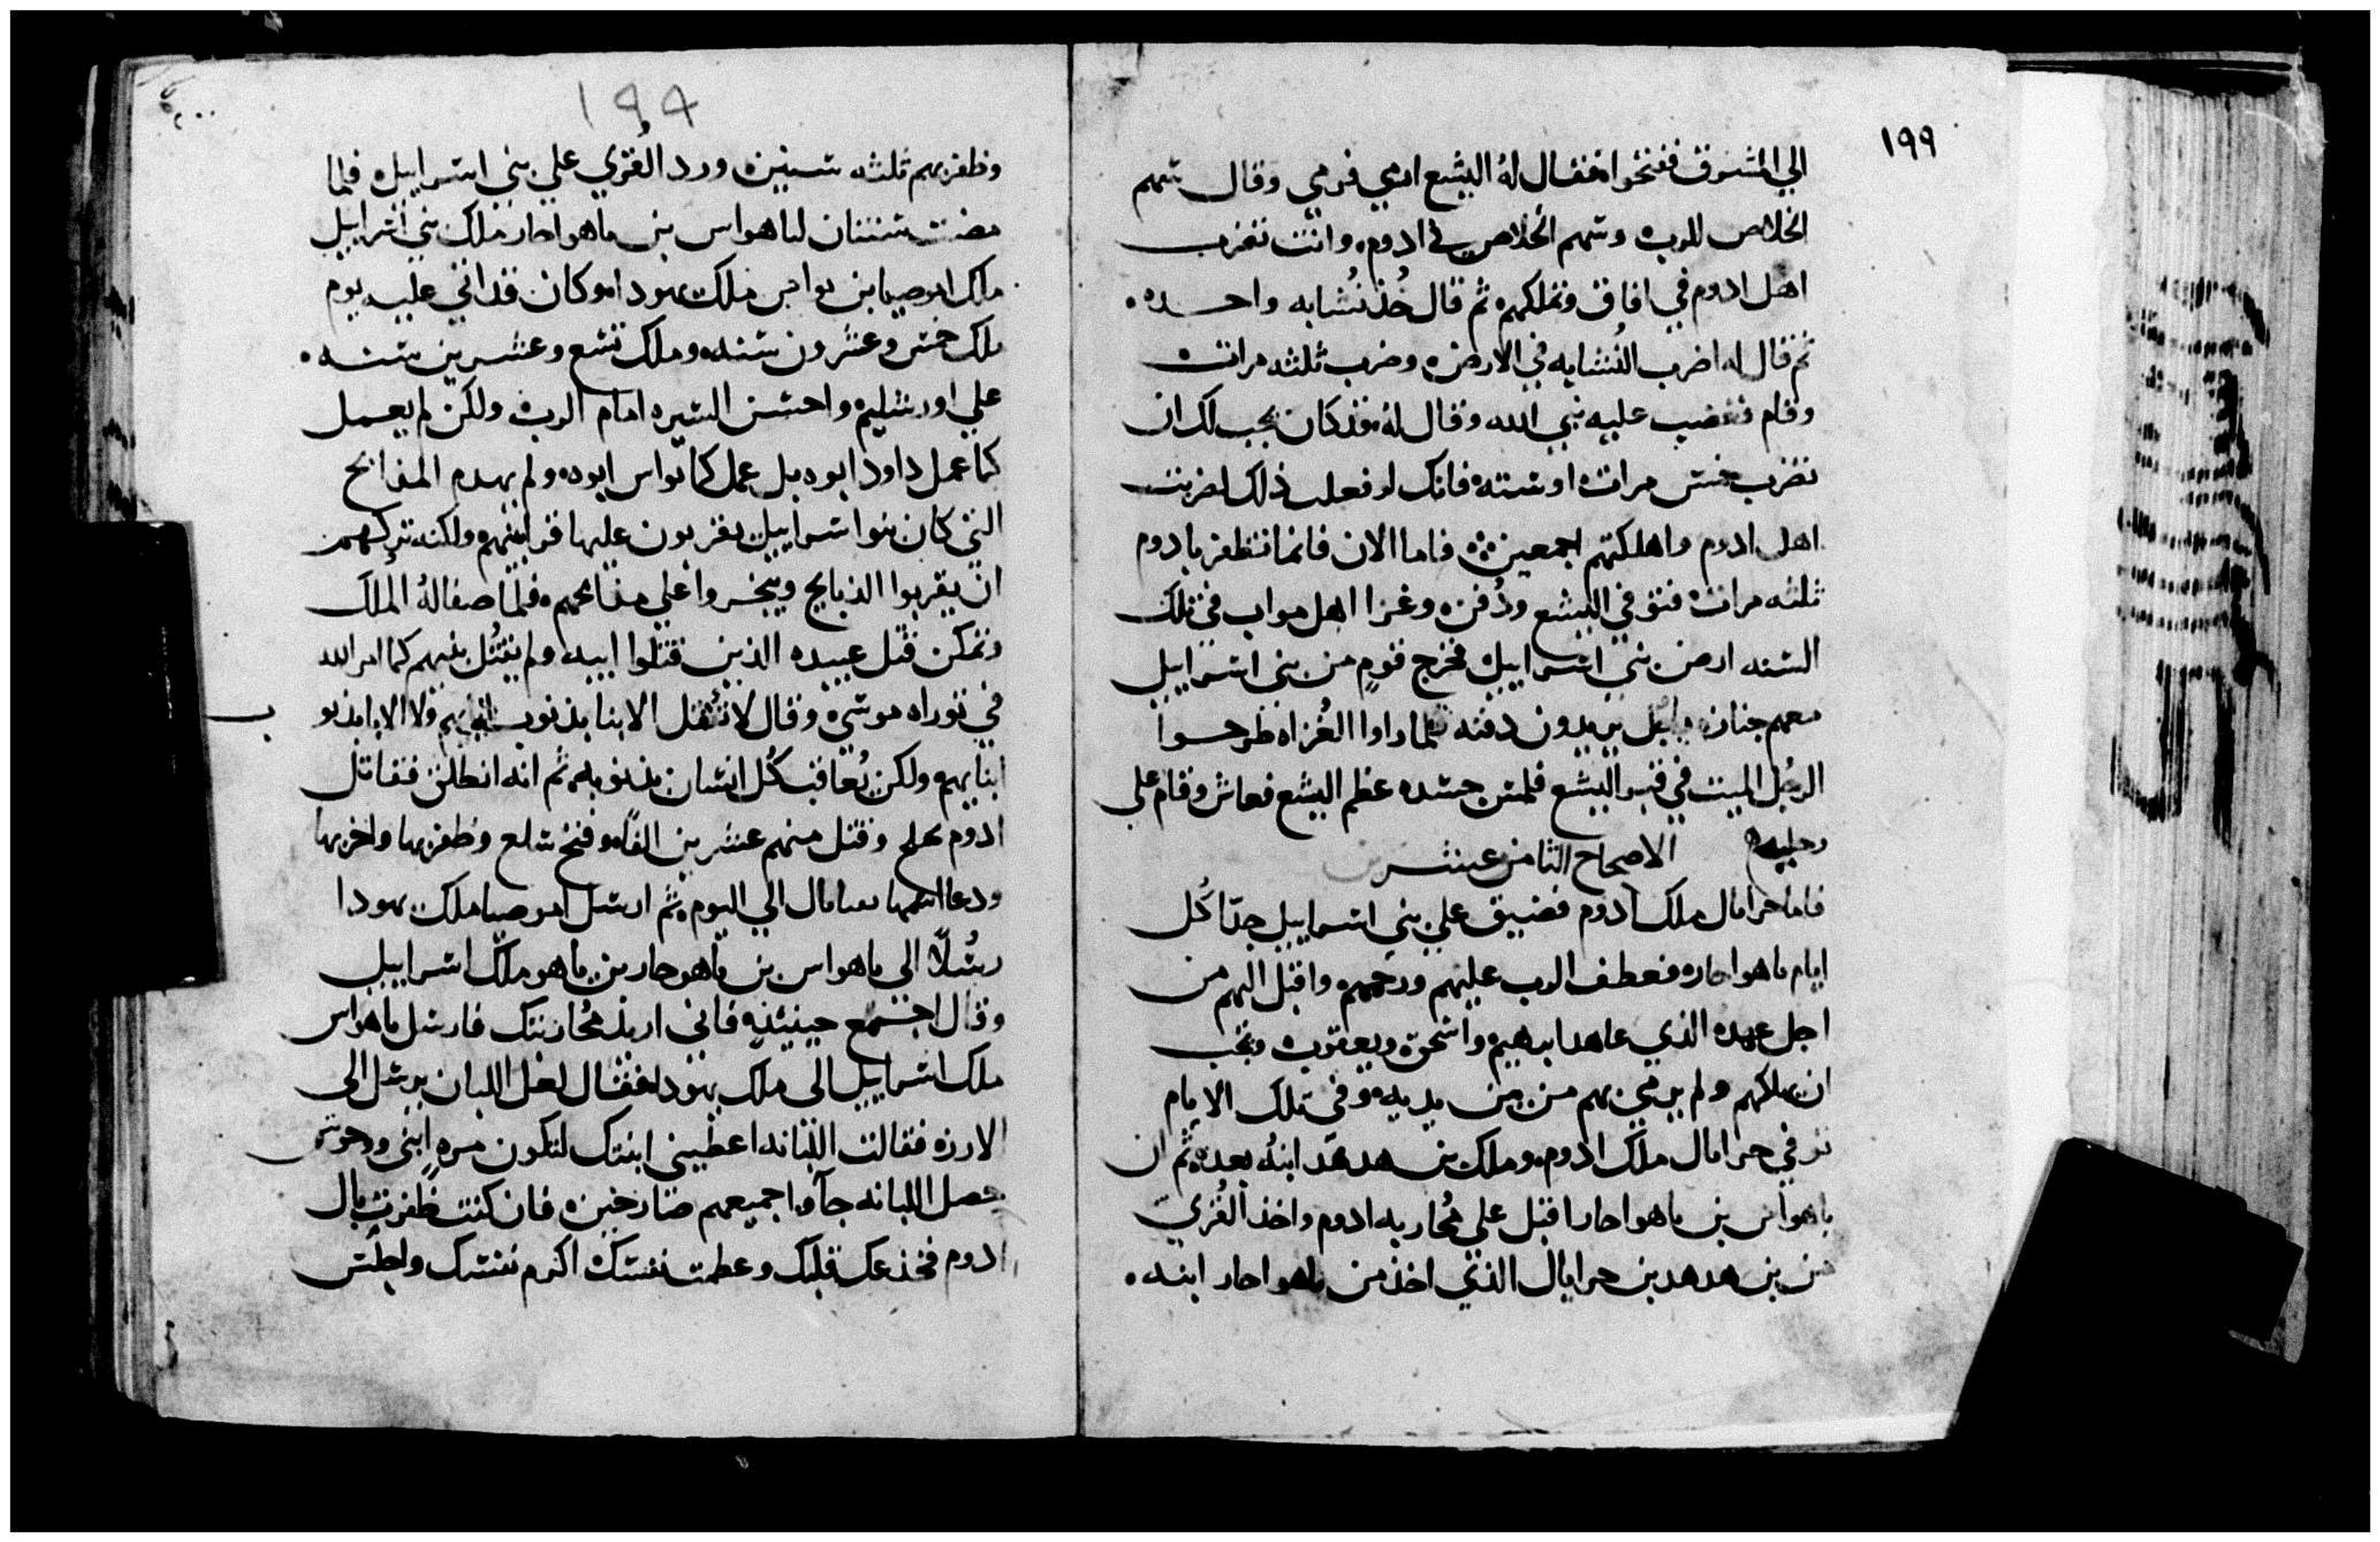 ١٩٩
الي المشرق ففتحوا فقال له اليشع ارمي فرمي وقال سهم
الخلاص للرب وسهم الخلاص في ادوم وانت تضرب
اهل ادوم في افاق وتهلكهم ثم قال خُذ نُشابه واحده
ثم قال له اضرب النُشابه في الارض وضرب ثلثه مرات
وقام فغضب عليه نبي الله وقال له قد كان يجب لك ان
تضرب خمس مرات او سته فانك لو فعلت ذلك لضربت
اهل ادوم واهلكتهم اجمعين فاما الان فانما تظفر بادوم
ثلثه مرات فتوفي اليشع ودُفن وغزا اهل مواب في تلك
السنه ارض بني اسراييل فخرج قوم من بني اسراييل
معهم جنازه رجل يريدون دفنه فلما راوا الغُزاه طرحوا
الرجُل الميت في قبر اليشع فلمس جسده عظم اليشع فعاش وقام علي
رجليه الاصحاح الثامن عشر
فاما حزايال ملك ادوم فضيق علي بني اسراييل جدا كُل
ايام ياهواحاز فعطف الرب عليهم ورحمهم واقبل اليهم من
اجل عهده الذي عاهد ابرهيم واسحق ويعقوب ولم يحب
ان يهلكهم ولم يرمي بهم من بين يديه وفي تلك الايام
توفي حزايال ملك ادوم وملك بن هدهد ابنُه بعده ثم ان
ياهواس بن ياهواحاز اقبل علي مُحاربه ادوم واخذ القُري
من بن هدهد بن حزايال الذي اخذ من ياهواحاز ابنه
١٩٩
وظفر بهم ثلثه سنين ورد القُري علي بني اسراييل فلما
مضت سنتان لياهواس بن ياهواحاز ملك بني اسراييل
ملك اموصيا بن يواس ملك يهودا وكان قد اتي عليه يوم
ملك خمس وعشرون سنه وملك تسع وعشرين سنه
علي اورشليم واحسن السيره امام الرب ولكن لم يعمل
كما عمل داود ابوه بل عمل كما يواس ابوه ولم يهدم المذابح
التي كان بنوا اسراييل يقربون عليها قرابينهم ولكنه تركهم
ان يقربوا الذبايح ويبخروا علي مذابحهم فلما صفا له المُلك
وتمكن قتل عبيده الذين قتلوا ابيه ولم يقتُل بنيهم كما امر الله
في توراه موسي وقال لا تقتل الابنا بذنوب ابايهم ولا الابا بذنوب
ابنايهم ولكن يُعاقب كُل انسان بذنوبه ثم انه انطلق فقاتل
ادوم وقتل منهم عشرين الفا وفتح سلع وظفر بها واخربها
ودعا اسمها الي اليوم ثم ارسل اموصيا ملك يهودا
رسُلا الي ياهواس بن ياهوحاز بن ياهو ملك اسراييل
وقال اجتمع حينيذ فاني اريد مُحاربتك فارسل ياهواس
ملك اسراييل الي ملك يهودا فقال لعل اللبان يرسل الي
الارزه فقالت اللبانه اعطيني ابنتك لتكون مره ابني
اللبانه جاوا جميعهم فان كنت ظفرت بال
ادوم فخدعك قلبك وعظمت نفسك اكرم نفسك واجلس